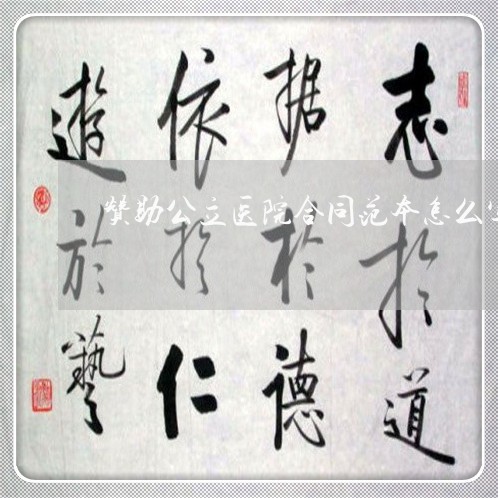 志於道
据於德
依於仁
遊於藝
赞助公立医院合同范本怎么